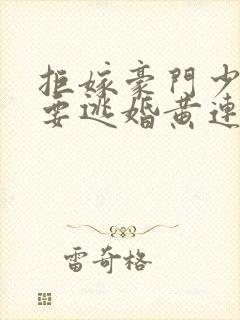 拒嫁豪門少
要逃婚黄連
雷奇格